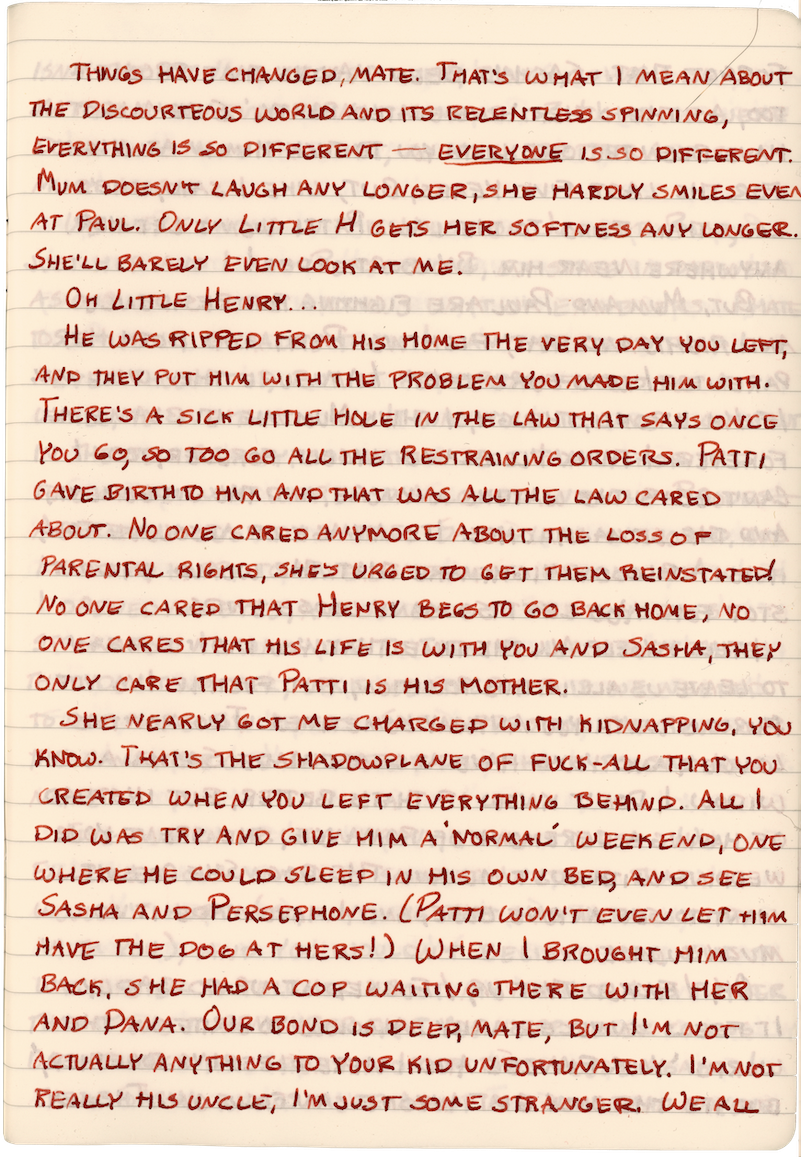 THINGS HAVE CHANGED, MATE. THAT'S WHAT I MEAN ABOUT
THE DISCOURTEOUS WORLD AND ITS RELENTLESS SPINNING,
EVERYTHING IS SO DIFFERENT — EVERYONE IS SO DIFFERENT.
MUM DOESN'T LAUGH ANY LONGER, SHE HARDLY SMILES EVEN
AT PAUL. ONLY LITTLE H GETS HER SOFTNESS ANY LONGER.
SHE'LL BARELY EVEN LOOK AT ME.
OH LITTLE HENRY...
HE WAS RIPPED FROM HIS HOME THE VERY DAY YOU LEFT,
AND THEY PUT HIM WITH THE PROBLEM YOU MADE HIM WITH.
THERE'S A SICK LITTLE HOLE IN THE LAW THAT SAYS ONCE
YOU GO, SO TOO GO ALL THE RESTRAINING ORDERS. PATTI
GAVE BIRTH TO HIM AND THAT WAS ALL THE LAW CARED
ABOUT. NO ONE CARED ANYMORE ABOUT THE LOSS OF
PARENTAL RIGHTS, SHE'S URGED TO GET THEM REINSTATED!
NO ONE CARED THAT HENRY BEGS TO GO BACK HOME, NO
ONE CARES THAT HIS LIFE IS WITH YOU AND SASHA, THEY
ONLY CARE THAT PATTI IS HIS MOTHER.
SHE NEARLY GOT ME CHARGED WITH KIDNAPPING, YOU
KNOW. THAT'S THE SHADOWPLANE OF FUCK-ALL THAT YOU
CREATED WHEN YOU LEFT EVERYTHING BEHIND. ALL I
DID WAS TRY AND GIVE HIM A 'NORMAL' WEEKEND, ONE
WHERE HE COULD SLEEP IN HIS OWN BED, AND SEE
SASHA AND PERSEPHONE. (PATTI WON'T EVEN LET HIM
HAVE THE DOG AT HERS!) WHEN I BROUGHT HIM
BACK, SHE HAD A COP WAITING THERE WITH HER
AND DANA. OUR BOND IS DEEP, MATE, BUT I'M NOT
ACTUALLY ANYTHING TO YOUR KID UNFORTUNATELY. I'M NOT
REALLY HIS UNCLE, I'M JUST SOME STRANGER. WE ALL